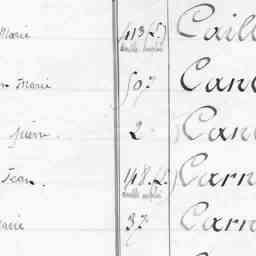 Marie 413 (L) Cail
Marie 507 Can
pierre. 2 Can
Jean. 148 (L) Carn
Marie 37 Carn